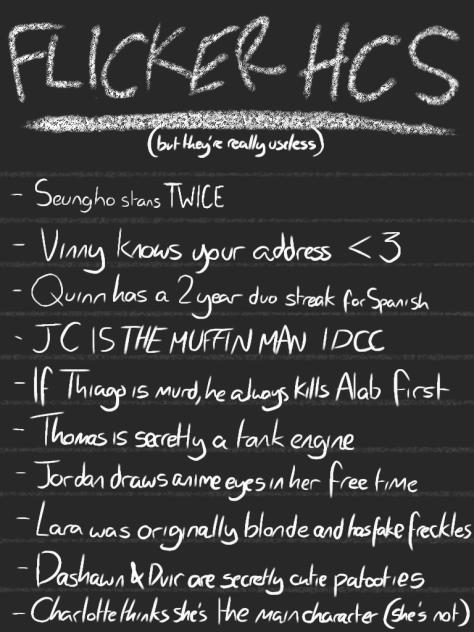 FLICKER HCS
(but they're really useless)
- Seungho stans TWICE
- Vinny knows your address <3
- Quinn has a 2 year duo streak for Spanish
- JC IS THE MUFFIN MAN IDCC
- If Thiago is murd, he always kills Alab first
- Thomas is secretly a tank engine
- Jordan draws anime eyes in her free time
- Lara was originally blonde and has fake freckles
- Dashawn & Dvir are secretly cutie patooties
- Charlotte thinks she's the main character (she's not)